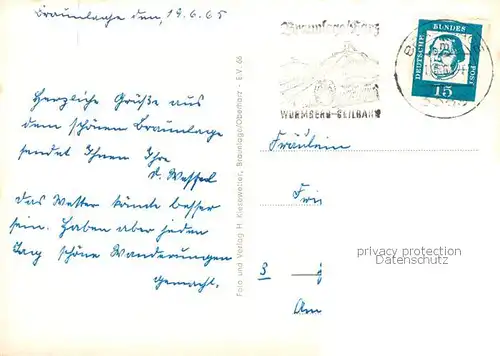 Braunlage den, 19.6.65
Herzliche Grüße aus
dem schönen Braunlage
sendet Ihnen Ihre
d. Wessel
das Wetter könnte besser
sein. Haben aber jeden
Tag schöne Wanderungen
gemacht.
Foto und Verlag H. Kiesewetter, Braunlage/Oberharz - E.V. 66
Braunlage/Harz
WURMBERG-SEILBAHN
DEUTSCHE BUNDES POST
15
Fräulein
privacy protection
Datenschutz
Am